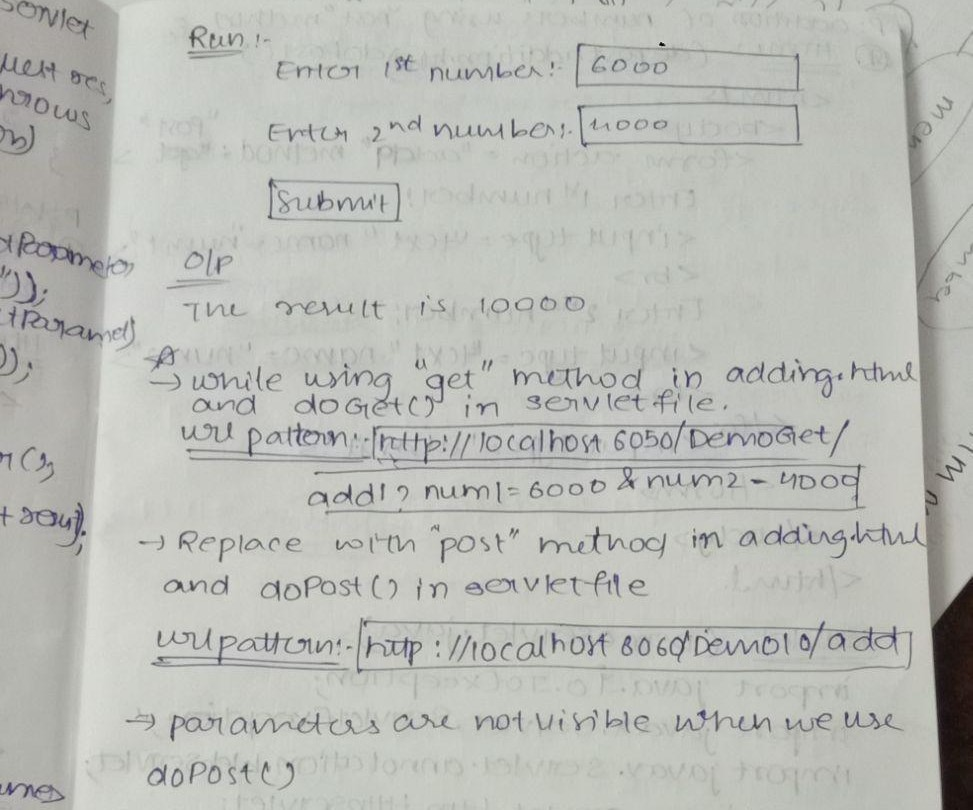 Servlet
Run :-
Enter 1st number:- 6000
Enter 2nd number:- 4000
Submit
throws
O/P
The result is 10000
→ while using "get" method in adding.html
and doGet() in servlet file.
url pattern:- http://localhost 6050/DemoGet/
add1? num1=6000 & num2-4000
→ Replace with "post" method in adding.html
and doPost() in servlet file
url pattern:- http://localhost 8060/Demo10/add
→ parameters are not visible when we use
doPost()